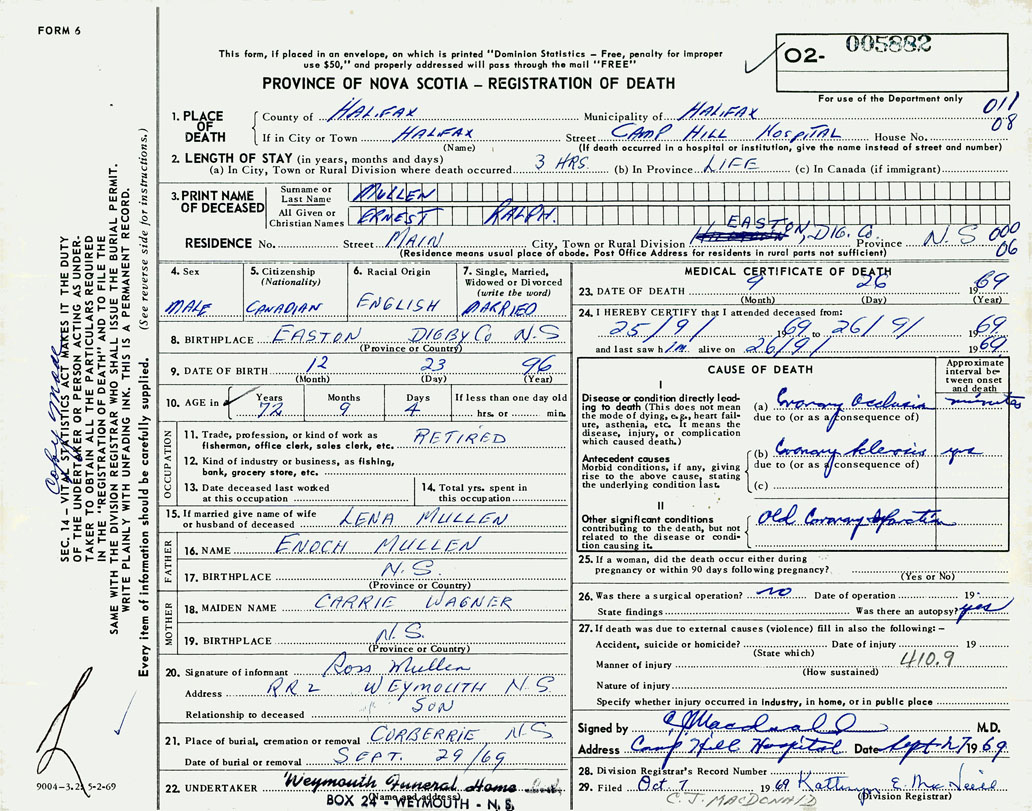 FORM 6
This form, if placed in an envelope, on which is printed "Dominion Statistics – Free, penalty for improper
use $50," and properly addressed will pass through the mail "FREE"
PROVINCE OF NOVA SCOTIA – REGISTRATION OF DEATH
O2- 005882
For use of the Department only
011
08
1. PLACE OF DEATH
County of HALIFAX Municipality of HALIFAX
If in City or Town HALIFAX Street CAMP HILL HOSPITAL House No.
(Name) (If death occurred in a hospital or institution, give the name instead of street and number)
2. LENGTH OF STAY (in years, months and days)
(a) In City, Town or Rural Division where death occurred 3 HRS (b) In Province LIFE (c) In Canada (if immigrant)
3. PRINT NAME OF DECEASED
Surname or Last Name MULLEN
All Given or Christian Names ERNEST RALPH
RESIDENCE No. Street MAIN City, Town or Rural Division EASTON, DIG. Co. Province N.S 000
06
(Residence means usual place of abode. Post Office Address for residents in rural parts not sufficient)
4. Sex
MALE
5. Citizenship
(Nationality)
CANADIAN
6. Racial Origin
ENGLISH
7. Single, Married,
Widowed or Divorced
(write the word)
MARRIED
8. BIRTHPLACE EASTON DIGBY Co N.S
(Province or Country)
9. DATE OF BIRTH 12 23 96
(Month) (Day) (Year)
10. AGE in Years Months Days If less than one day old
72 9 4 hrs. or min.
OCCUPATION
11. Trade, profession, or kind of work as
fisherman, office clerk, sales clerk, etc. RETIRED
12. Kind of industry or business, as fishing,
bank, grocery store, etc.
13. Date deceased last worked
at this occupation
14. Total yrs. spent in
this occupation
15. If married give name of wife
or husband of deceased LENA MULLEN
FATHER
16. NAME ENOCH MULLEN
17. BIRTHPLACE N.S.
(Province or Country)
MOTHER
18. MAIDEN NAME CARRIE WAGNER
19. BIRTHPLACE N.S.
(Province or Country)
20. Signature of informant Ross Mullen
Address RR2 WEYMOUTH N.S
Relationship to deceased SON
21. Place of burial, cremation or removal CORBERRIE N.S
Date of burial or removal SEPT. 29/69
22. UNDERTAKER Weymouth Funeral Home
(Name and address)
BOX 24 - WEYMOUTH - N.S.
MEDICAL CERTIFICATE OF DEATH
23. DATE OF DEATH 9 26 1969
(Month) (Day) (Year)
24. I HEREBY CERTIFY that I attended deceased from:
25/9/ 1969 to 26/9/ 1969
and last saw h im alive on 26/9/ 1969
CAUSE OF DEATH
Approximate
interval be-
tween onset
and death
I
Disease or condition directly lead-
ing to death (This does not mean
the mode of dying, e.g., heart fail-
ure, asthenia, etc. It means the
disease, injury, or complication
which caused death.)
(a) Coronary Occlusion minutes
due to (or as a consequence of)
Antecedent causes
Morbid conditions, if any, giving
rise to the above cause, stating
the underlying condition last.
(b) Coronary Sclerosis yrs
due to (or as a consequence of)
(c)
II
Other significant conditions
contributing to the death, but not
related to the disease or condi-
tion causing it.
Old Coronary Infarction
25. If a woman, did the death occur either during
pregnancy or within 90 days following pregnancy?
(Yes or No)
26. Was there a surgical operation? no Date of operation 19
State findings Was there an autopsy? yes
27. If death was due to external causes (violence) fill in also the following: –
Accident, suicide or homicide? Date of injury 19
(State which)
Manner of injury 410.9
(How sustained)
Nature of injury
Specify whether injury occurred in Industry, in home, or in public place
Signed by C J Macdonald M.D.
Address Camp Hill Hospital Date Sept 27 1969
28. Division Registrar's Record Number
29. Filed Oct 1 1969 E. MacNeill
(Division Registrar)
C. J. MACDONALD
SEC. 14 – VITAL STATISTICS ACT MAKES IT THE DUTY
OF THE UNDERTAKER OR PERSON ACTING AS UNDER-
TAKER TO OBTAIN ALL THE PARTICULARS REQUIRED
IN THE "REGISTRATION OF DEATH" AND TO FILE THE
SAME WITH THE DIVISION REGISTRAR WHO SHALL ISSUE THE BURIAL PERMIT.
WRITE PLAINLY WITH UNFADING INK. THIS IS A PERMANENT RECORD.
Every item of information should be carefully supplied. (See reverse side for instructions.)
Copy Made
9004-3. 5-2-69